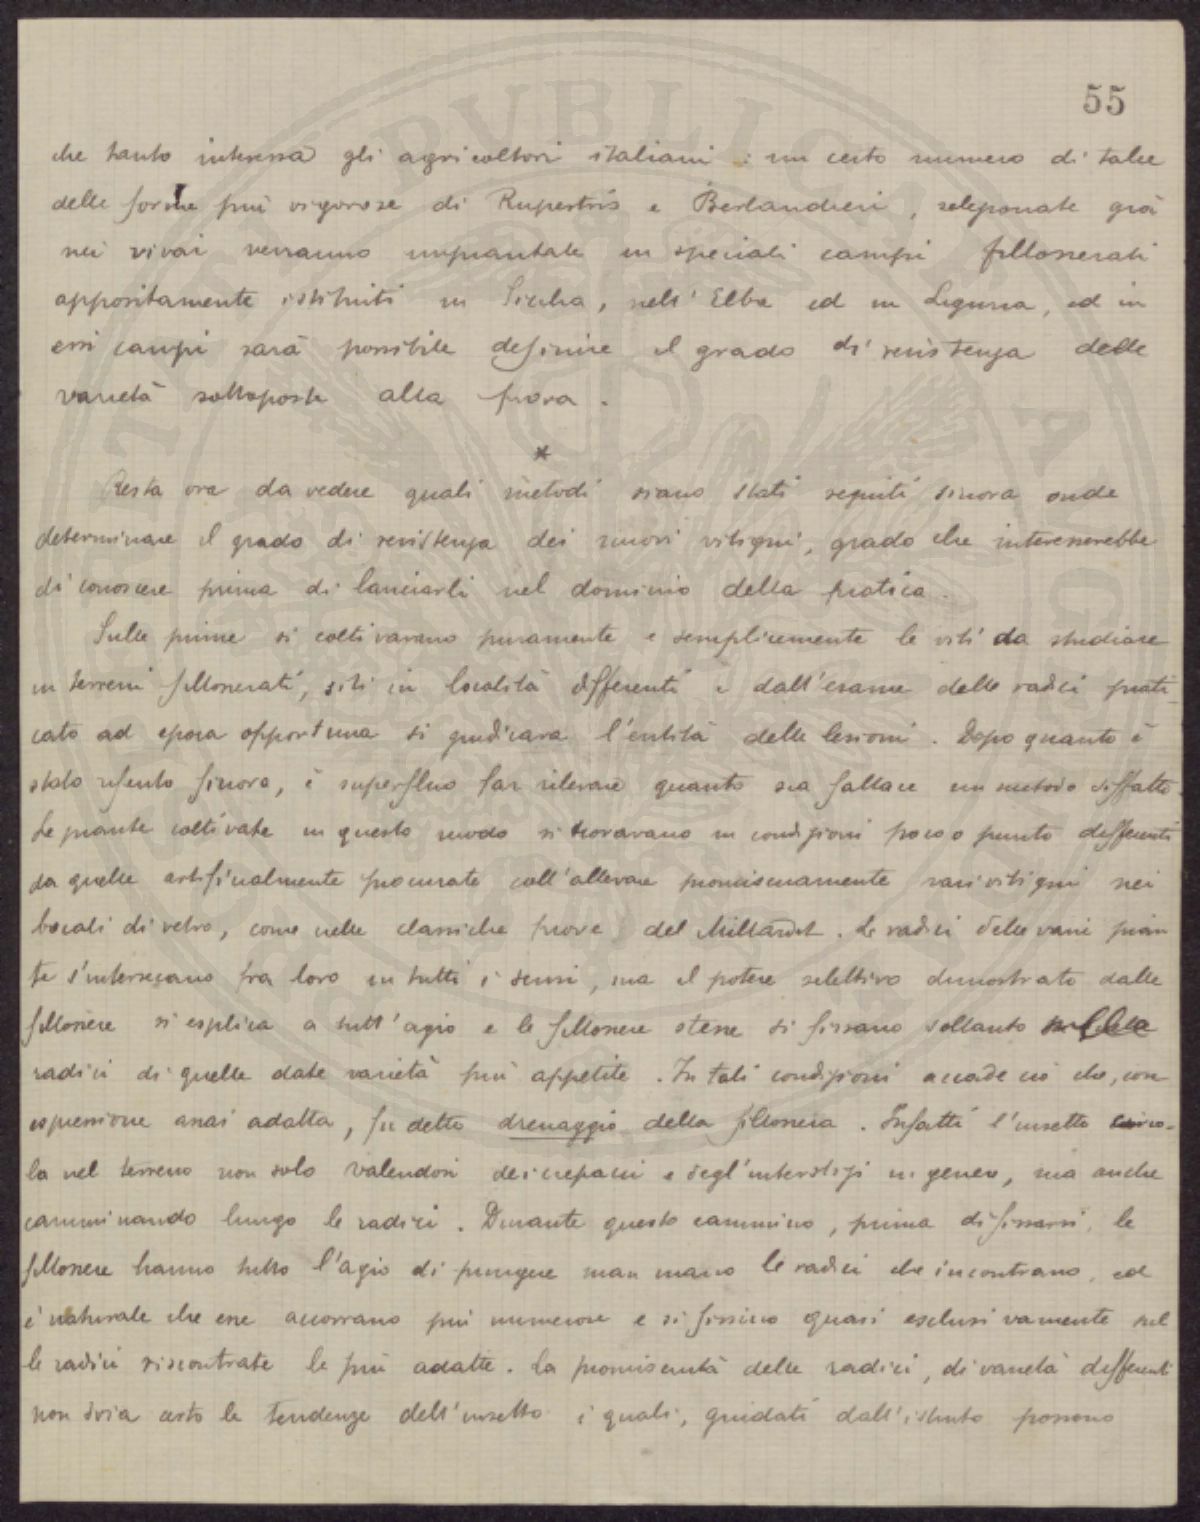 55
che tanto interessa gli agricoltori italiani : un certo numero di talee
delle forme più vigorose di Rupestris e Berlandieri, selezionate già
nei vivai verranno impiantate in speciali campi fillosserati
appositamente istituiti in Sicilia, nell'Elba ed in Liguria, ed in
essi campi sarà possibile definire il grado di resistenza delle
varietà sottoposte alla prova.
*
Resta ora da vedere quali metodi siano stati seguiti sinora onde
determinare il grado di resistenza dei nuovi vitigni, grado che interesserebbe
di conoscere prima di lanciarli nel dominio della pratica.
Sulle prime si coltivavano puramente e semplicemente le viti da studiare
in terreni fillosserati, siti in località differenti e dall'esame delle radici prati
cato ad epoca opportuna si giudicava l'entità delle lesioni. Dopo quanto è
stato riferito finora, è superfluo far rilevare quanto sia fallace un metodo siffatto.
Le piante coltivate in questo modo si trovavano in condizioni poco o punto differenti
da quelle artificialmente procurate coll'allevare promiscuamente vari vitigni nei
bocali di vetro, come nelle classiche prove del Millardet. Le radici delle varie pian
te s'intersecano fra loro in tutti i sensi, ma il potere selettivo dimostrato dalle
fillossere si esplica a tutt'agio e le fillossere stesse si fissano soltanto sulle
radici di quelle date varietà più appetite. In tali condizioni accade ciò che, con
espressione assai adatta, fu detto drenaggio della fillossera. Infatti l'insetto circo-
la nel terreno non solo valendosi dei crepacci e degl'interstizi in genere, ma anche
camminando lungo le radici. Durante questo cammino, prima di fissarsi, le
fillossere hanno tutto l'agio di pungere man mano le radici che incontrano, ed
è naturale che esse accorrano più numerose e si fissino quasi esclusivamente sul
le radici riscontrate le più adatte. La promiscuità delle radici, di varietà differenti
non svia certo le tendenze dell'insetto i quali, guidati dall'istinto possono